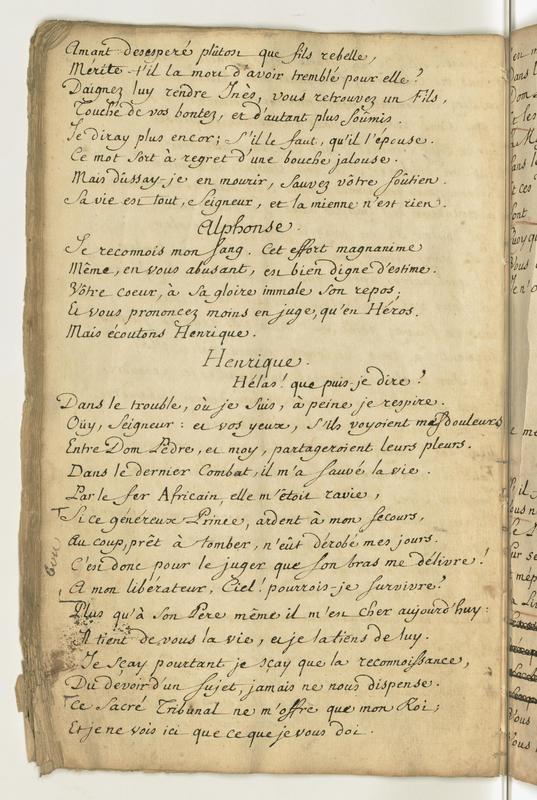 Amant desesperé plûton que fils rebelle,
Mérite-t'il la mort d'avoir tremblé pour elle?
Daignez luy rendre Inès, vous retrouvez un Fils,
Touché de vos bontez, et d'autant plus soûmis.
Je diray plus encor; s'il le faut, qu'il l'épouse.
Ce mot sort à regret d'une bouche jalouse.
Mais dûssay-je en mourir, sauvez vôtre soûtien.
Sa vie est tout, Seigneur, et la mienne n'est rien.
Alphonse.
Je reconnois mon sang. Cet effort magnanime
Même, en vous abusant, est bien digne d'estime.
Vôtre coeur, à sa gloire immole son repos;
Et vous prononcez moins en juge, qu'en Héros.
Mais écoutons Henrique.
Henrique.
Hélas! que puis-je dire?
Dans le trouble, où je suis, à peine je respire.
Oüy, Seigneur: et vos yeux, s'ils voyoient mes douleurs
Entre Dom Pédre, et moy, partageroient leurs pleurs.
Dans le dernier Combat, il m'a sauvé la vie.
Par le fer Africain, elle m'étoit ravie,
Si ce généreux Prince, ardent à mon secours,
Au coup, prêt à tomber, n'eût dérobé mes jours.
C'est donc pour le juger que son bras me délivre!
A mon libérateur, Ciel! pourrois-je survivre?
Plus qu'à son Pere même il m'est cher aujourd'huy:
Il tient de vous la vie, et je la tiens de luy.
Je sçay pourtant je sçay que la reconnoissance,
Du devoir d'un sujet, jamais ne nous dispense.
Ce Sacré Tribunal ne m'offre que mon Roi;
Et je ne vois ici que ce que je vous doi.